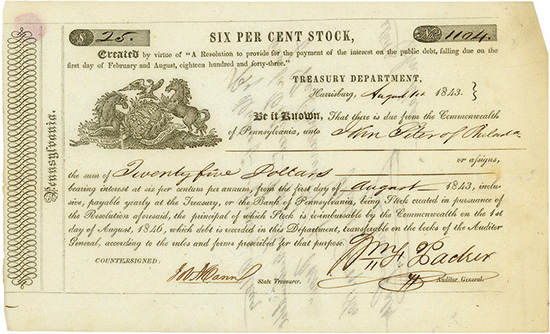 $ 25. SIX PER CENT STOCK, No. 1104.
Created by virtue of "A Resolution to provide for the payment of the interest on the public debt, falling due on the
first day of February and August, eighteen hundred and forty-three."
TREASURY DEPARTMENT,
Harrisburg, August 1st 1843.
Be it Known, That there is due from the Commonwealth
of Pennsylvania, unto John Siter of Philada
or assigns,
the sum of Twenty five Dollars
bearing interest at six per centum per annum, from the first day of August 1843, inclu-
sive, payable yearly at the Treasury, or the Bank of Pennsylvania, being Stock created in pursuance of
the Resolution aforesaid, the principal of which Stock is re-imbursable by the Commonwealth on the 1st
day of August, 1846, which debt is recorded in this Department, transferable on the books of the Auditor
General, according to the rules and forms prescribed for that purpose.
COUNTERSIGNED:
Wm F Packer
State Treasurer.
Auditor General.
Pennsylvania.